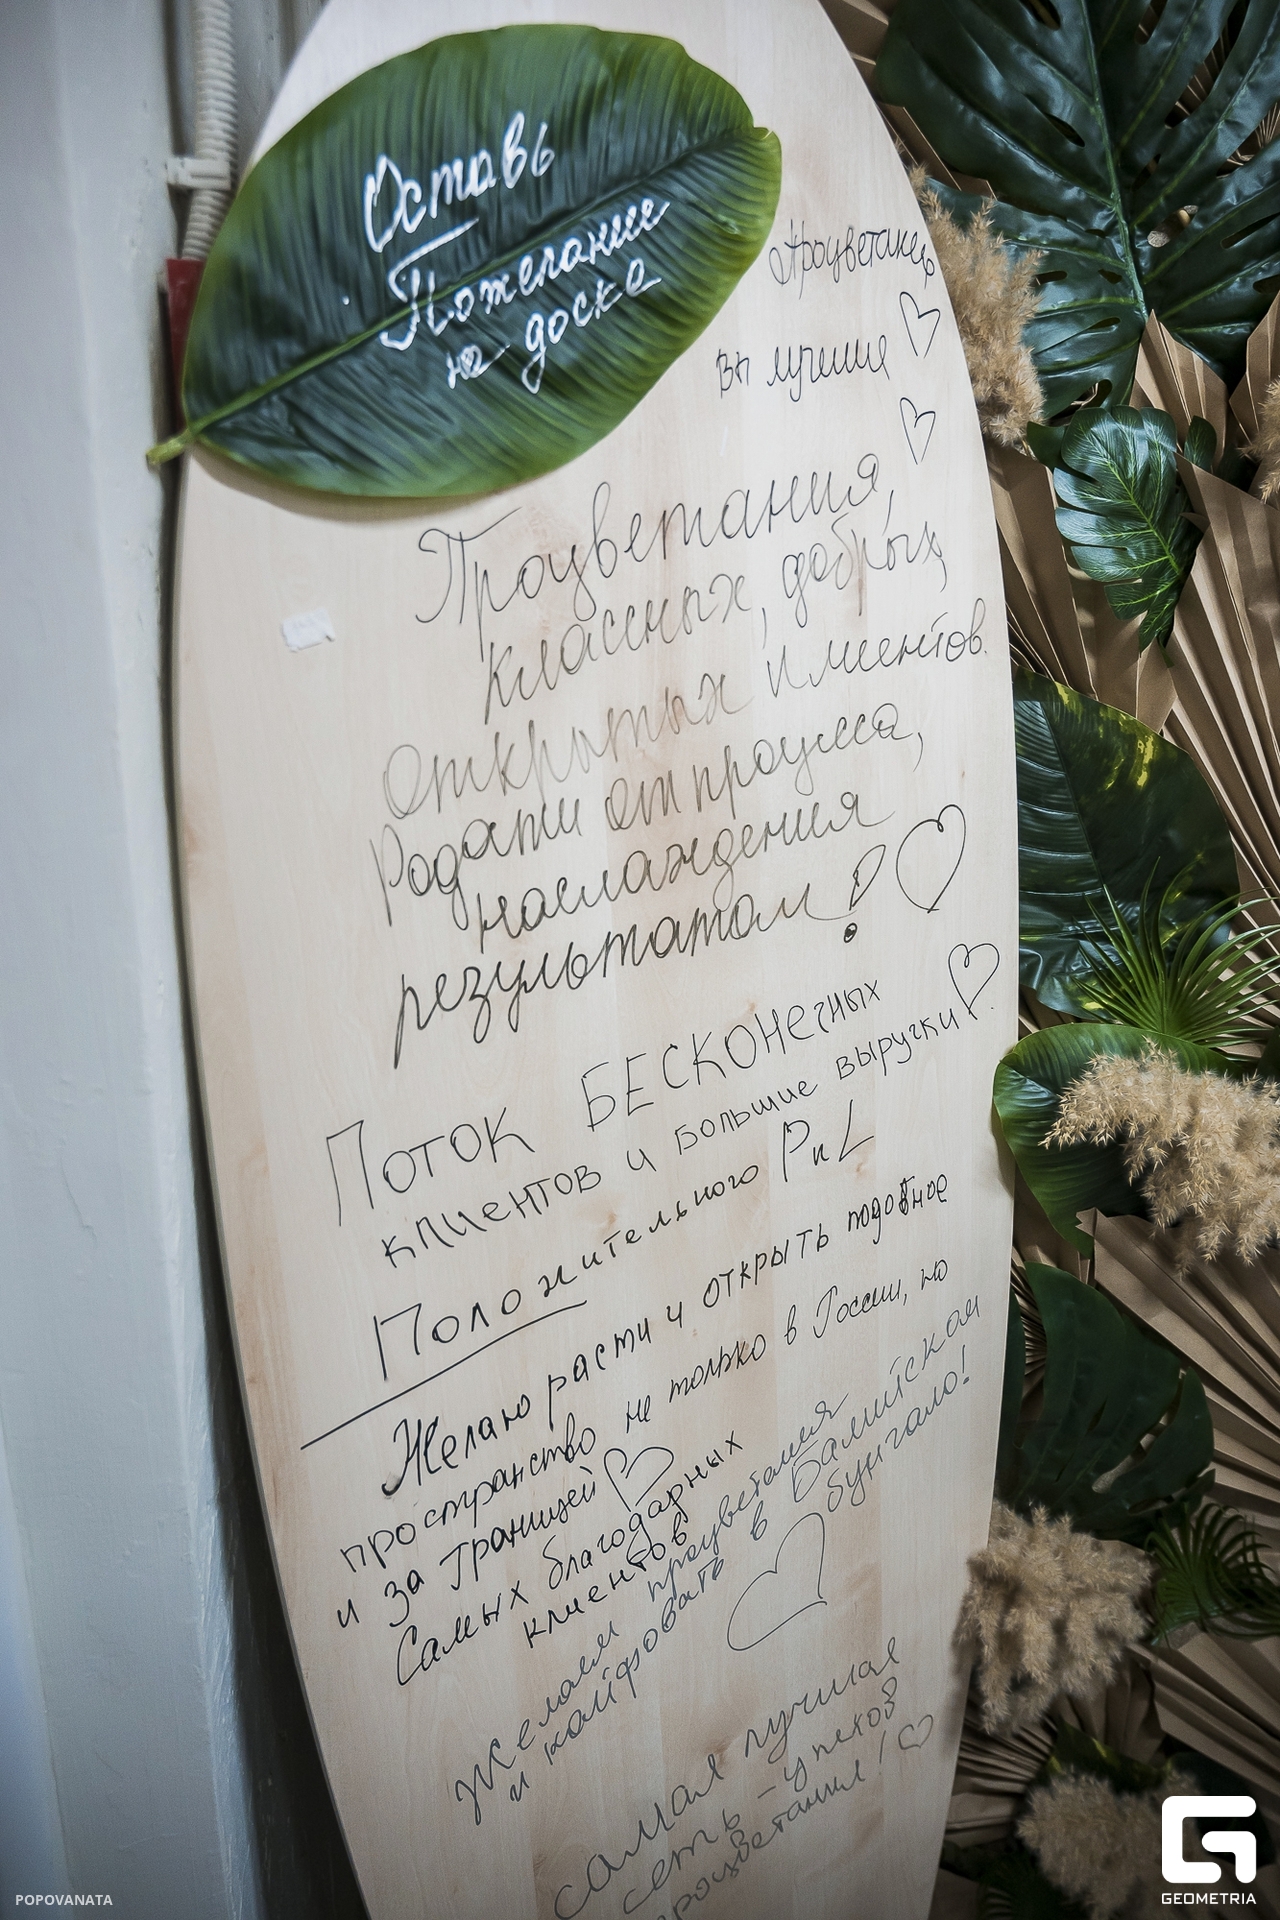 Оставь
Пожелание
на доске
Процветание
вы лучшие
Процветания,
классных, добрых,
открытых клиентов.
Радости от процесса,
наслаждения
результатом!
Поток БЕСКОНечных
клиентов и большие выручки
Положительного PnL
Желаю расти и открыть подобное
пространство не только в России, но
и за границей
Самых благодарных
клиентов
Желаем процветания
и кайфовать в Балийском
бунгало!
самая лучшая
сеть - успехов
процветания!
POPOVANATA
GEOMETRIA